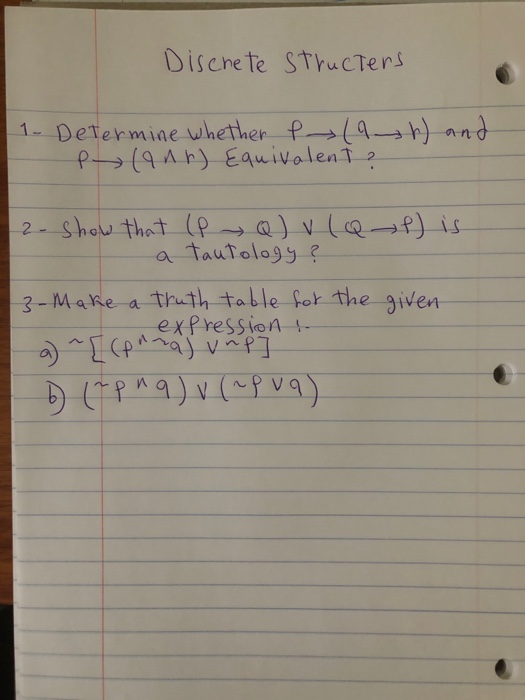 Discrete Structers
1- Determine whether p → (q → r) and
p → (q ∧ r) Equivalent ?
2- Show that (P → Q) ∨ (Q → P) is
a tautology ?
3- Make a truth table for the given
expression :-
a) ~[(p ∧ ~q) ∨ ~p]
b) (~p ∧ q) ∨ (~p ∨ q)